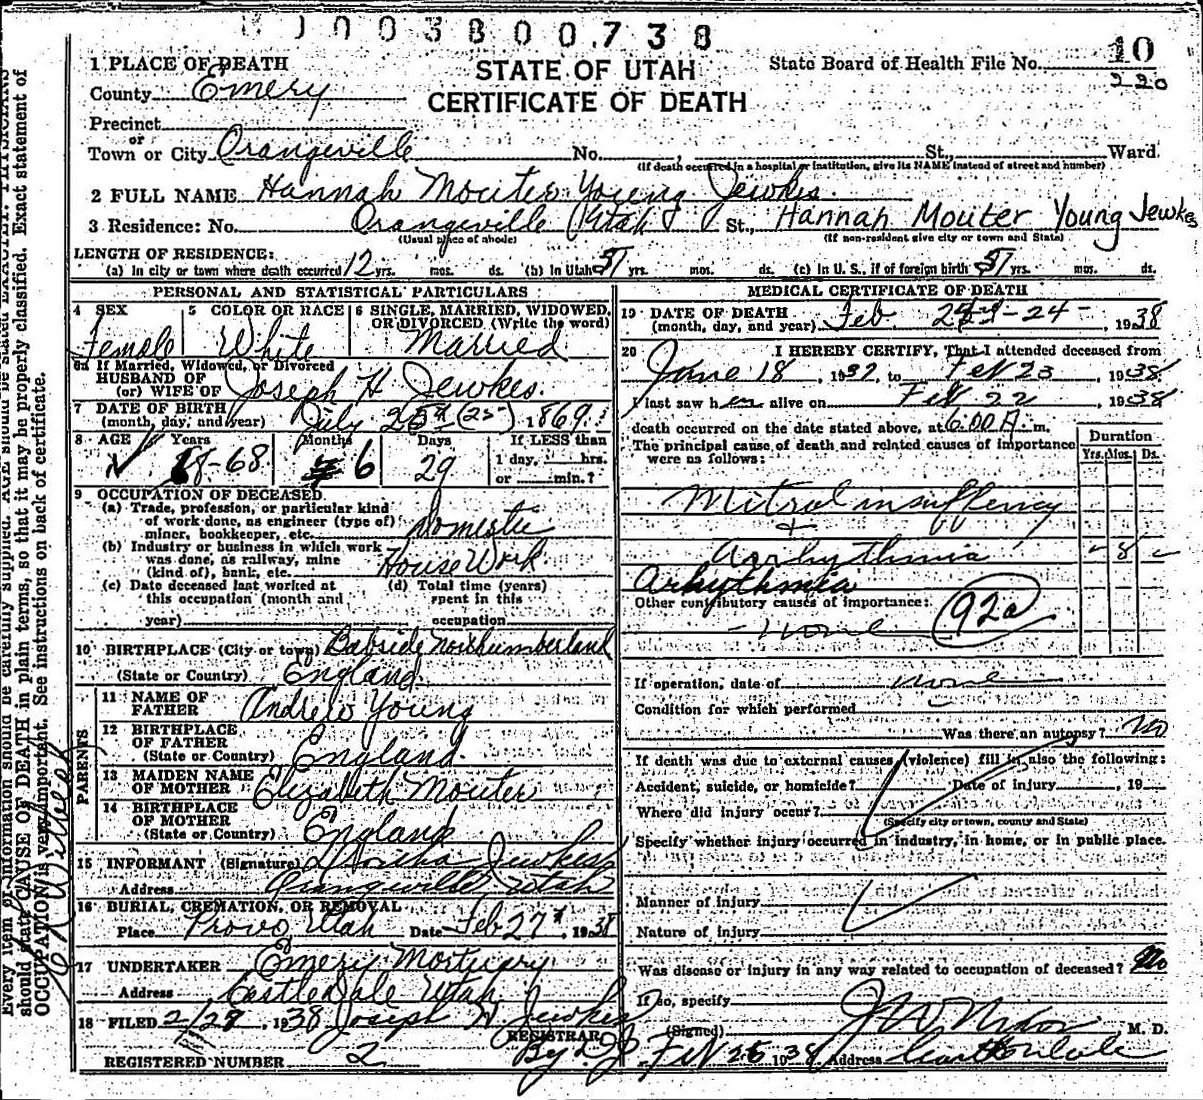 003800738
1 PLACE OF DEATH
STATE OF UTAH
State Board of Health File No. 10
220
County Emery
CERTIFICATE OF DEATH
Precinct
or
Town or City Orangeville No. St., Ward.
(If death occurred in a hospital or institution, give its NAME instead of street and number)
2 FULL NAME Hannah Mouter Young Jewkes.
3 Residence: No. Orangeville Utah St., Hannah Mouter Young Jewkes
(Usual place of abode) (If non-resident give city or town and State)
LENGTH OF RESIDENCE:
(a) In city or town where death occurred 12 yrs. mos. ds. (b) In Utah 51 yrs. mos. ds. (c) In U. S., if of foreign birth 51 yrs. mos. ds.
PERSONAL AND STATISTICAL PARTICULARS
4 SEX 5 COLOR OR RACE 6 SINGLE, MARRIED, WIDOWED, OR DIVORCED (Write the word)
Female White Married
6a If Married, Widowed, or Divorced
HUSBAND OF
(or) WIFE OF Joseph H Jewkes.
7 DATE OF BIRTH
(month, day, and year) July 25th (25) 1869
8 AGE Years Months Days If LESS than
68 6 29 1 day, hrs.
or min.?
9 OCCUPATION OF DECEASED
(a) Trade, profession, or particular kind
of work done, as engineer (type of)
miner, bookkeeper, etc. Domestic
(b) Industry or business in which work
was done, as railway, mine
(kind of), bank, etc. House Work
(c) Date deceased last worked at (d) Total time (years)
this occupation (month and spent in this
year) occupation
10 BIRTHPLACE (City or town) Northumberland
(State or Country) England
PARENTS
11 NAME OF
FATHER Andrew Young
12 BIRTHPLACE
OF FATHER
(State or Country) England.
13 MAIDEN NAME
OF MOTHER Elizabeth Mouter
14 BIRTHPLACE
OF MOTHER
(State or Country) England
15 INFORMANT (Signature) Jewkes
Address Orangeville, Utah
16 BURIAL, CREMATION, OR REMOVAL
Place Provo Utah Date Feb 27, 1938
17 UNDERTAKER Emery Mortuary
Address Castledale Utah
18 FILED 2/28, 1938 Joseph H Jewkes
REGISTRAR
REGISTERED NUMBER 2 By
MEDICAL CERTIFICATE OF DEATH
19 DATE OF DEATH
(month, day, and year) Feb 24, 1938
20 I HEREBY CERTIFY, That I attended deceased from
June 18, 1937, to Feb 23, 1938
I last saw her alive on Feb 22, 1938
death occurred on the date stated above, at 6:00 A. m.
The principal cause of death and related causes of importance
were as follows:
Duration
Yrs. Mos. Ds.
Mitral insuffiency
+
Arrhythmia - 8 -
Arhythmia
Other contributory causes of importance: 92a
- none
If operation, date of none
Condition for which performed
Was there an autopsy? no
If death was due to external causes (violence) fill in also the following:
Accident, suicide, or homicide? Date of injury, 19
Where did injury occur?
(Specify city or town, county and State)
Specify whether injury occurred in industry, in home, or in public place.
Manner of injury
Nature of injury
Was disease or injury in any way related to occupation of deceased? No
If so, specify
(Signed) J W Nixon, M. D.
Feb 26 1938 Address Castledale
Every item of information should be carefully supplied. AGE should be stated EXACTLY. PHYSICIANS
should state CAUSE OF DEATH in plain terms, so that it may be properly classified. Exact statement of
OCCUPATION is very important. See instructions on back of certificate.